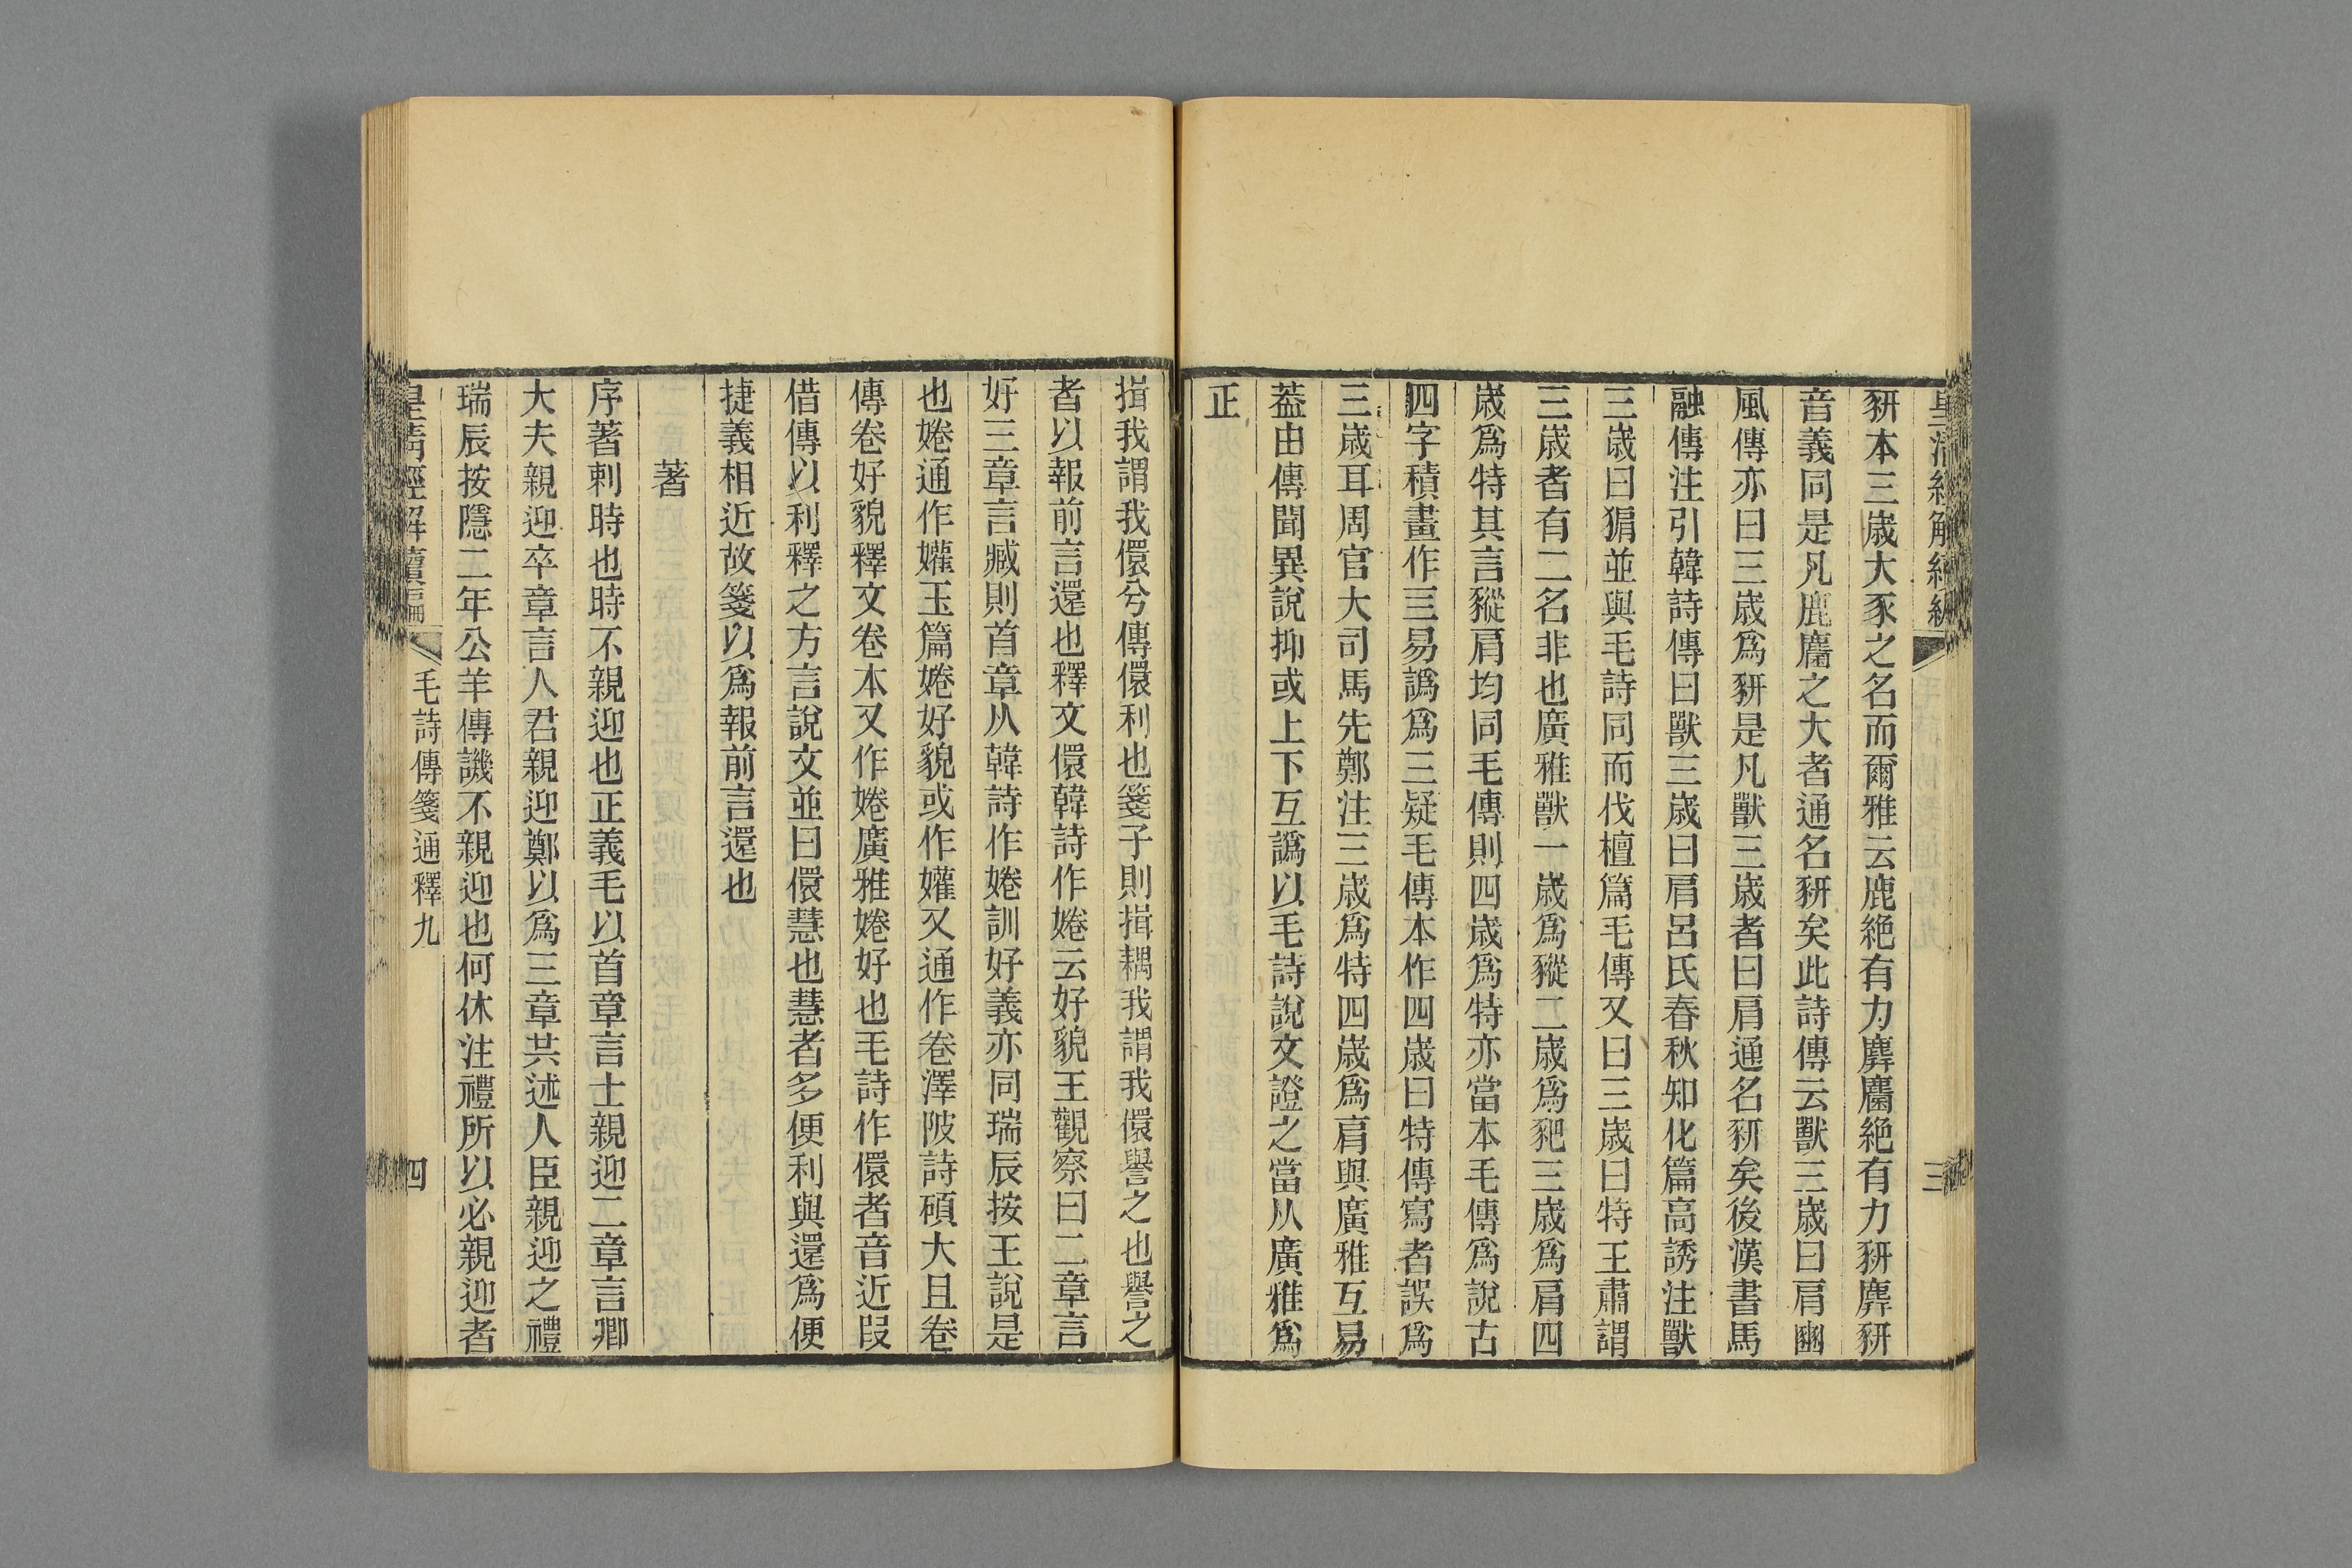 豜本三歲大豕之名而爾雅云鹿絶有力麉麕絶有力豜麉豜
音義同是凡鹿麕之大者通名豜矣此詩傳云獸三歲曰肩豳
風傳亦曰三歲爲豜是凡獸三歲者曰肩通名豜矣後漢書馬
融傳注引韓詩傳曰獸三歲曰肩呂氏春秋知化篇高誘注獸
三歲曰豣並與毛詩同而伐檀篇毛傳又曰三歲曰特王肅謂
三歲者有二名非也廣雅獸一歲爲豵二歲爲豝三歲爲肩四
歲爲特其言豵肩均同毛傳則四歲爲特亦當本毛傳爲說古
四字積畫作亖易譌爲三疑毛傳本作四歲曰特傳寫者誤爲
三歲耳周官大司馬先鄭注三歲爲特四歲爲肩與廣雅互易
葢由傳聞異說抑或上下互譌以毛詩說文證之當从廣雅爲
正
揖我謂我儇兮傳儇利也箋子則揖耦我謂我儇譽之也譽之
者以報前言還也釋文儇韓詩作婘云好貌王觀察曰二章言
好三章言臧則首章从韓詩作婘訓好義亦同瑞辰按王說是
也婘通作孉玉篇婘好貌或作孉又通作卷澤陂詩碩大且卷
傳卷好貌釋文卷本又作婘廣雅婘好也毛詩作儇者音近叚
借傳以利釋之方言說文並曰儇慧也慧者多便利與還爲便
捷義相近故箋以爲報前言還也
著
序著刺時也時不親迎也正義毛以首章言士親迎二章言卿
大夫親迎卒章言人君親迎鄭以爲三章共述人臣親迎之禮
瑞辰按隱二年公羊傳譏不親迎也何休注禮所以必親迎者
皇清經解續編
毛詩傳箋通釋九
四